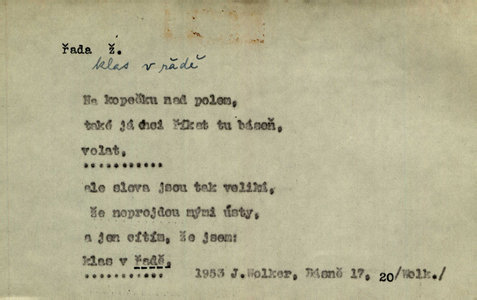 řada ž.
klas v řádě
Na kopečku nad polem,
také já chci říkat tu báseň,
volat,
...........
ale slova jsou tak veliká,
že neprojdou mými ústy,
a jen cítím, že jsem:
klas v řadě,
...........
1953 J.Wolker, Básně 17, 20/Wolk./